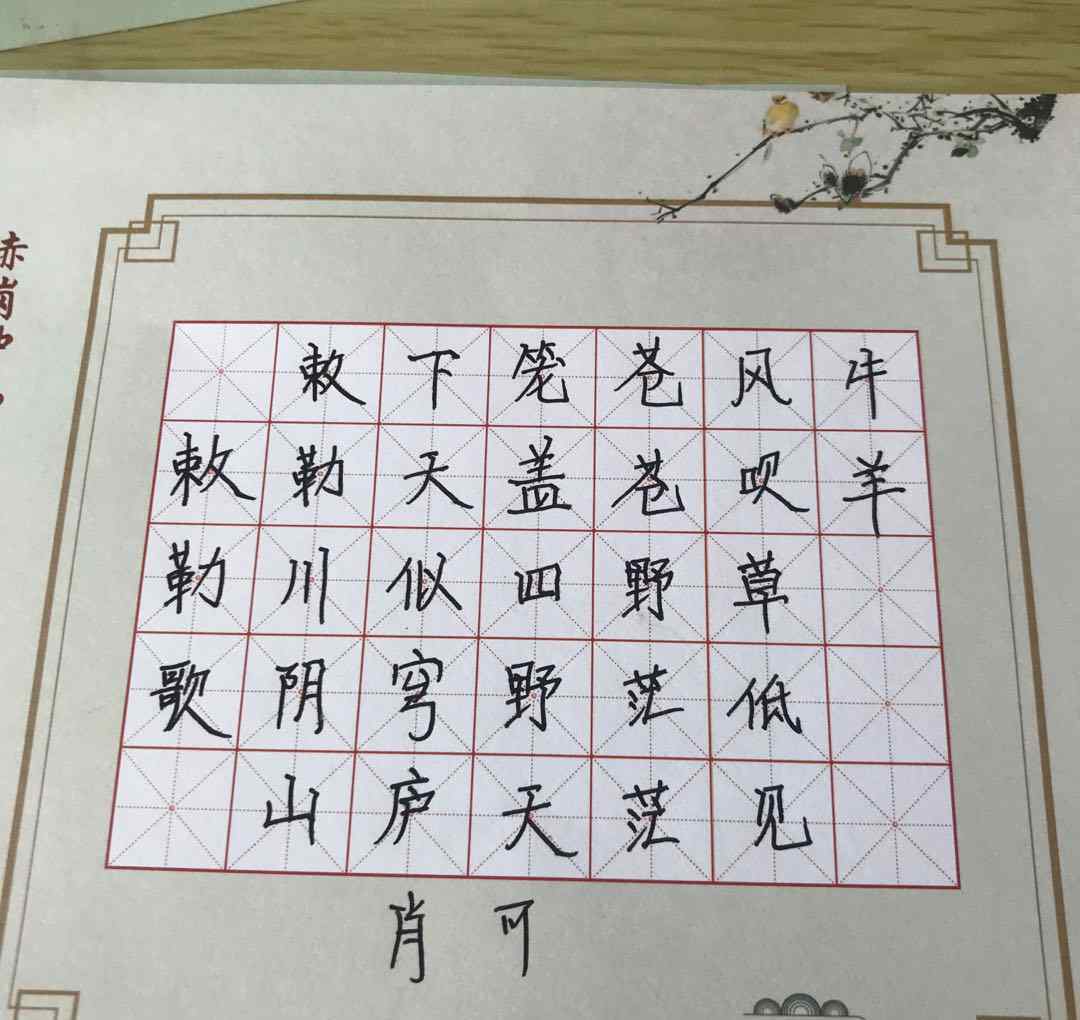 敕勒歌
敕勒川阴山
下天似穹庐
笼盖四野天
苍苍野茫茫
风吹草低见
牛羊
肖可
赤岗